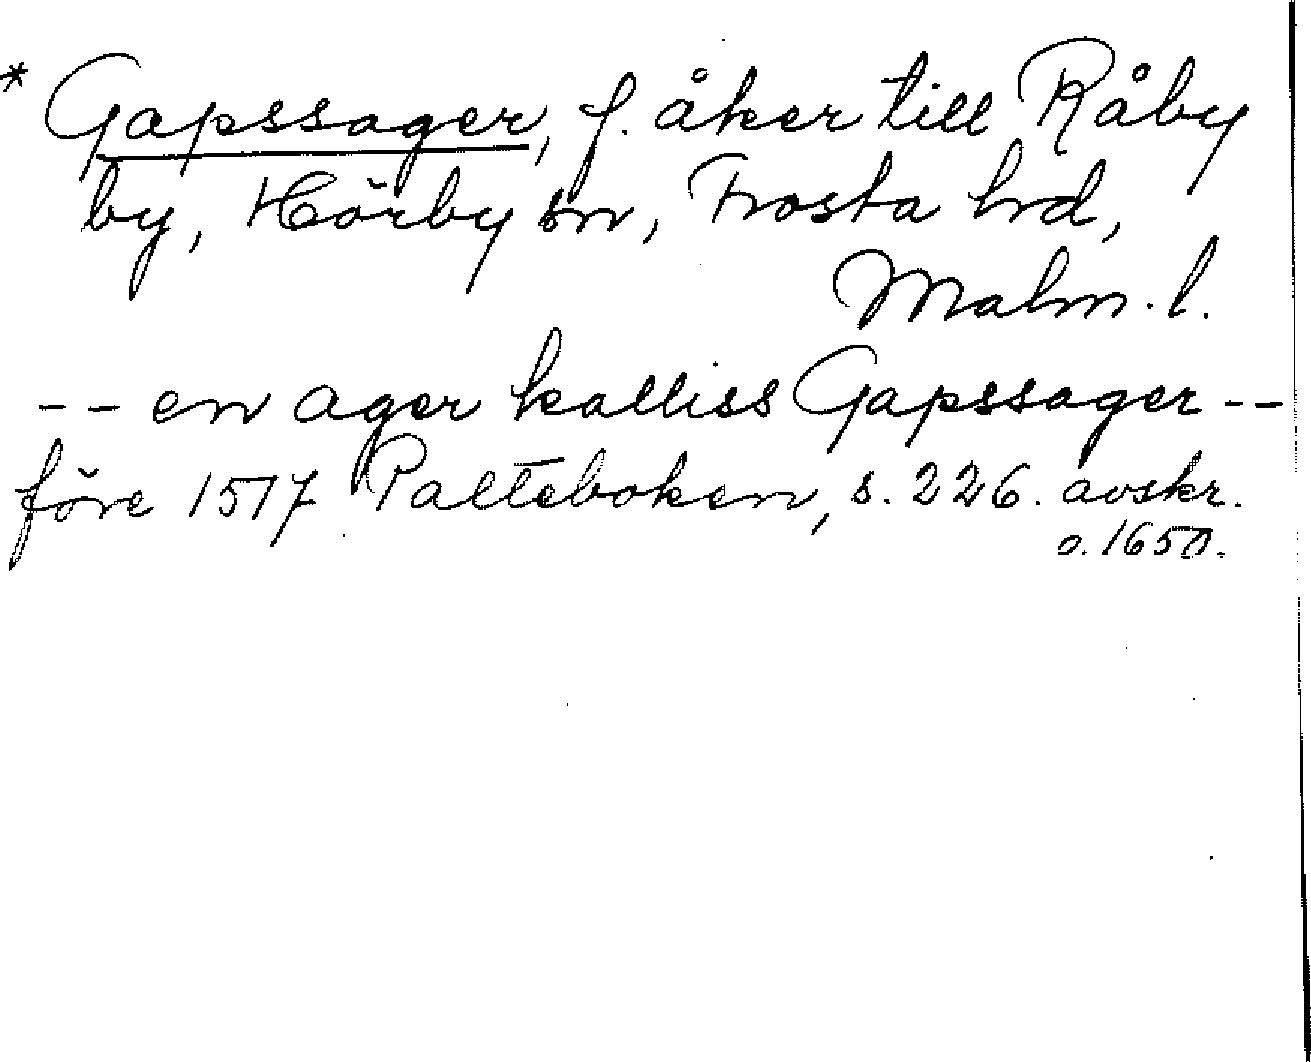 * Gapssager, f. åker till Råby
by, Hörby sn, Frosta hrd,
Malm. l.
-- en ager kalliss Gapssager --
före 1517 Palteboken, s. 226. avskr.
o. 1650.